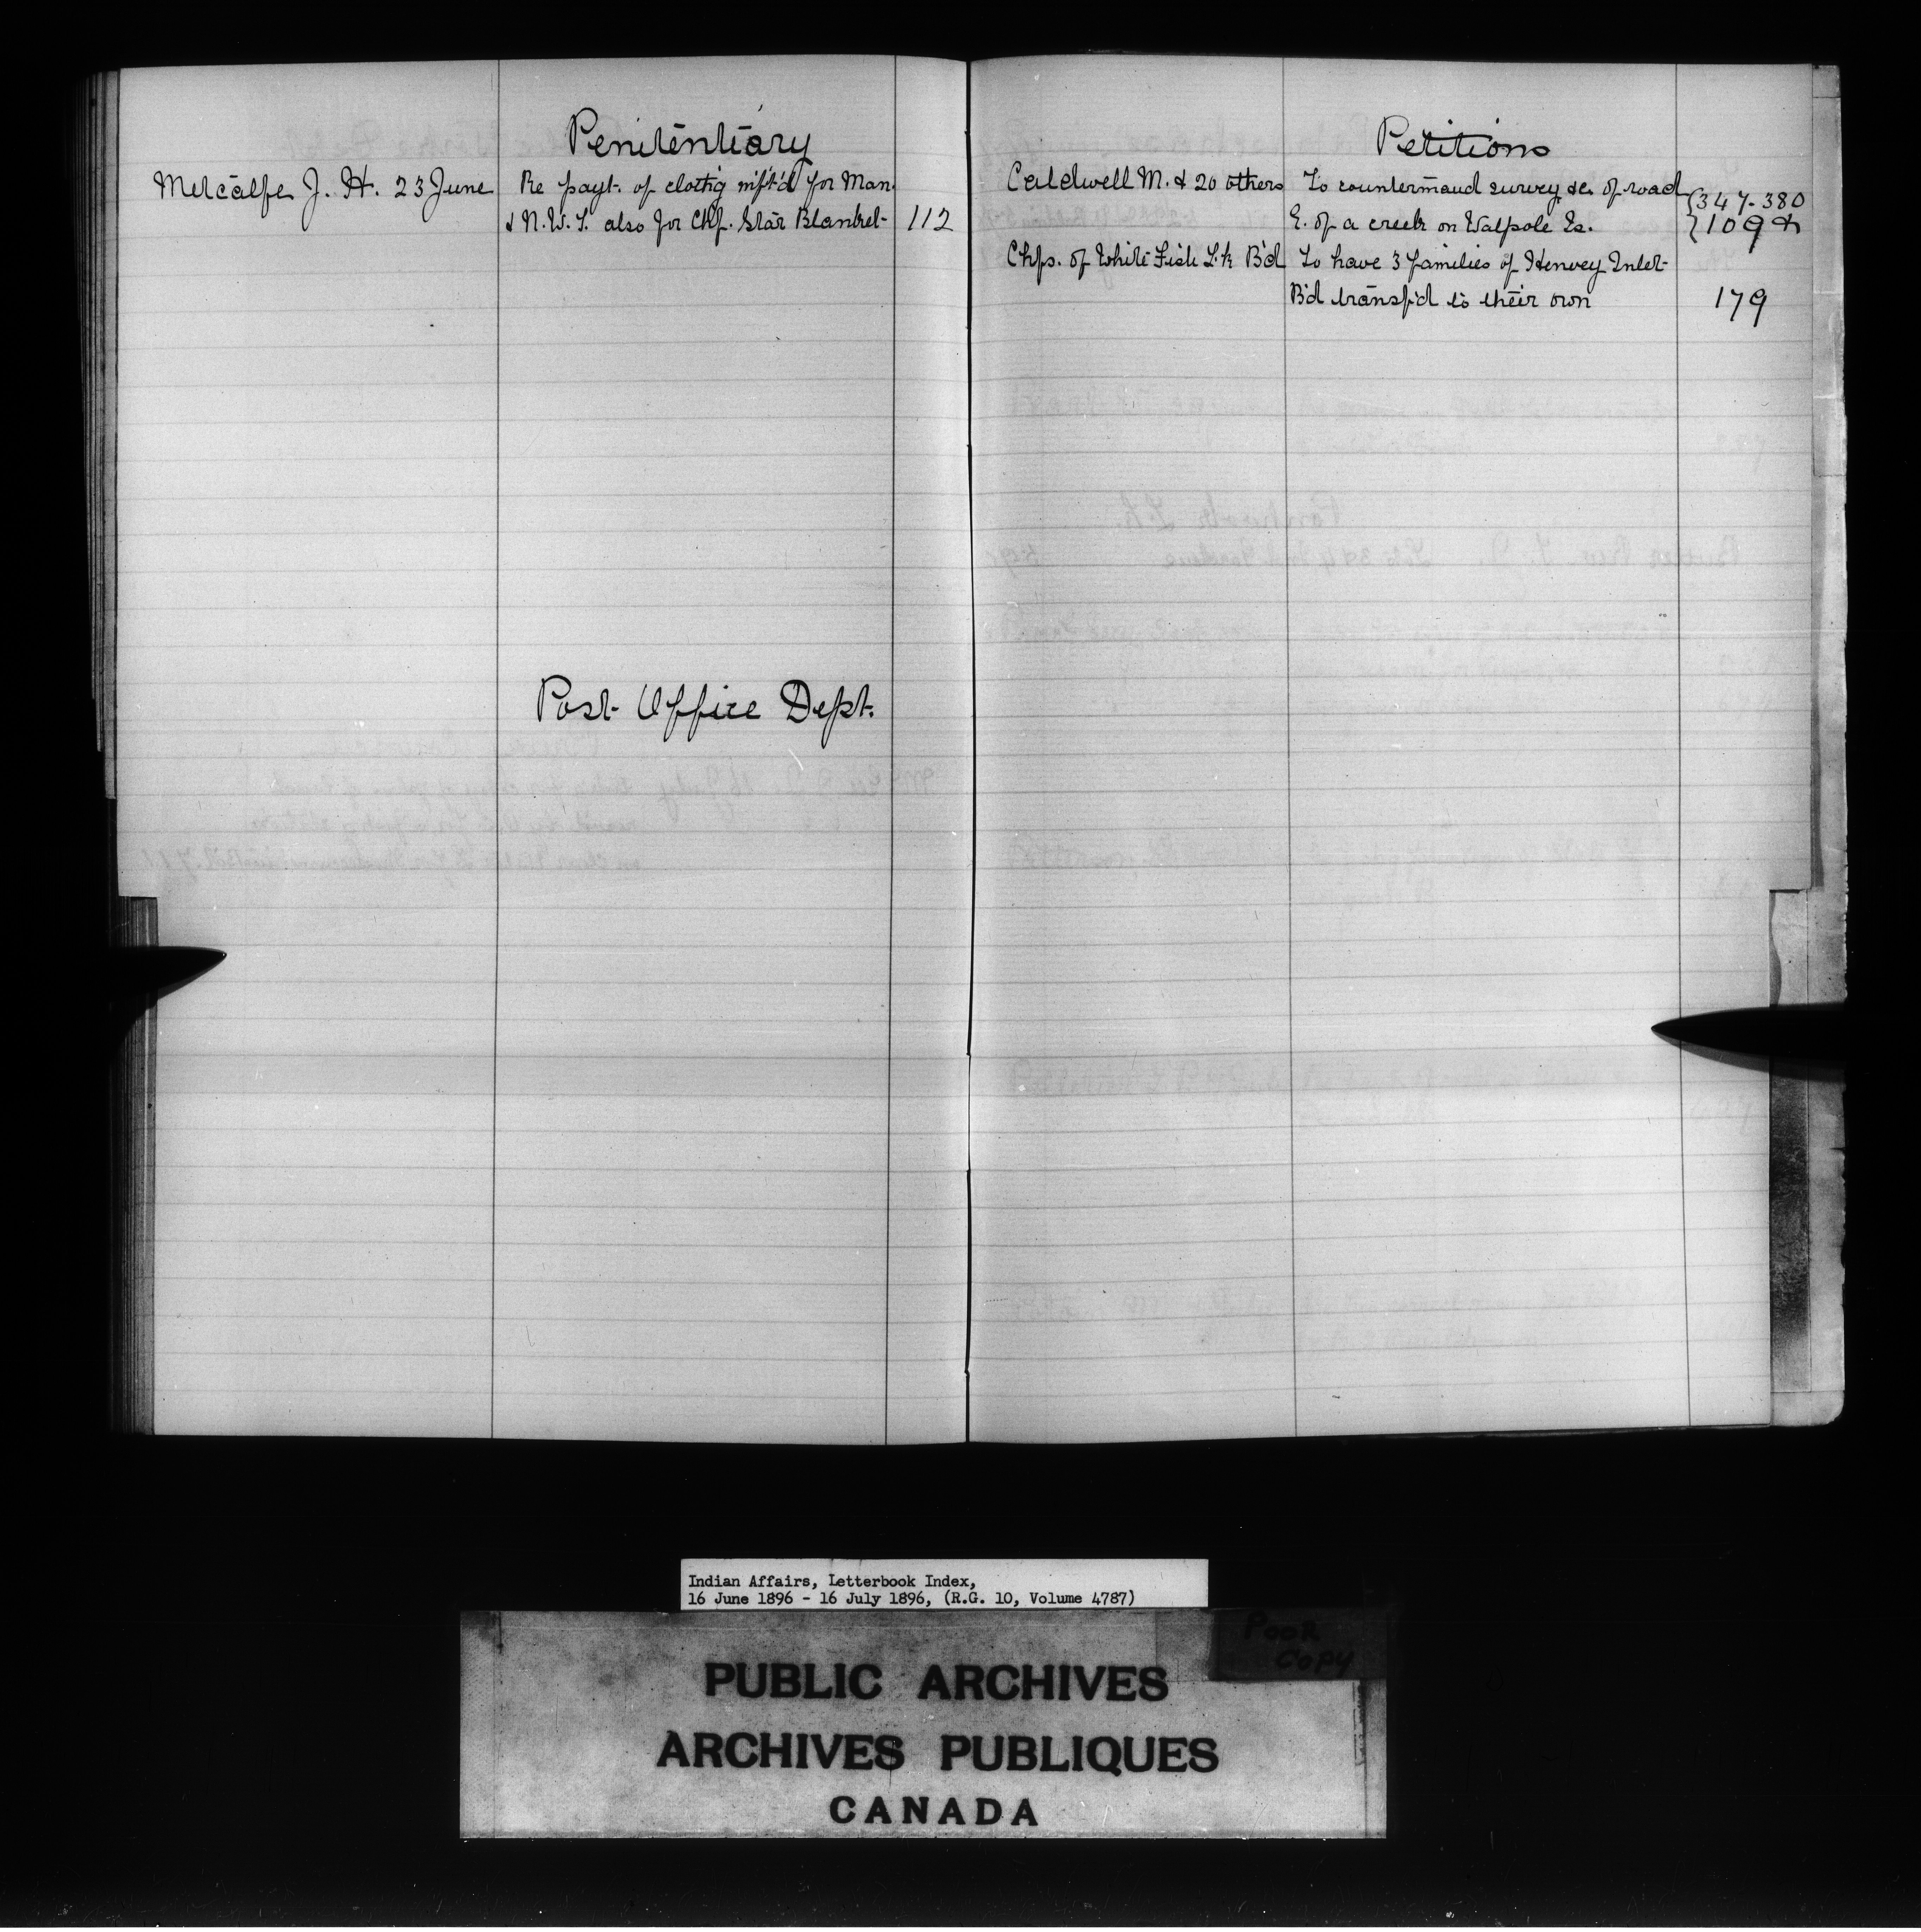 Penitentiary
Metcalfe J. H. 23 June Re payt. of clothg mft'd for Man.
& N. W. T. also for Chf. Star Blanket 112
Post Office Dept.
Petitions
Caldwell M. & 20 others To countermand survey &c. of road {347-380
E. of a creek on Walpole Is. {109
Chfs. of White Fish Lk B'd To have 3 families of Henvey Inlet
B'd transf'd to their own 179
Indian Affairs, Letterbook Index,
16 June 1896 - 16 July 1896, (R.G. 10, Volume 4787)
POOR
COPY
PUBLIC ARCHIVES
ARCHIVES PUBLIQUES
CANADA